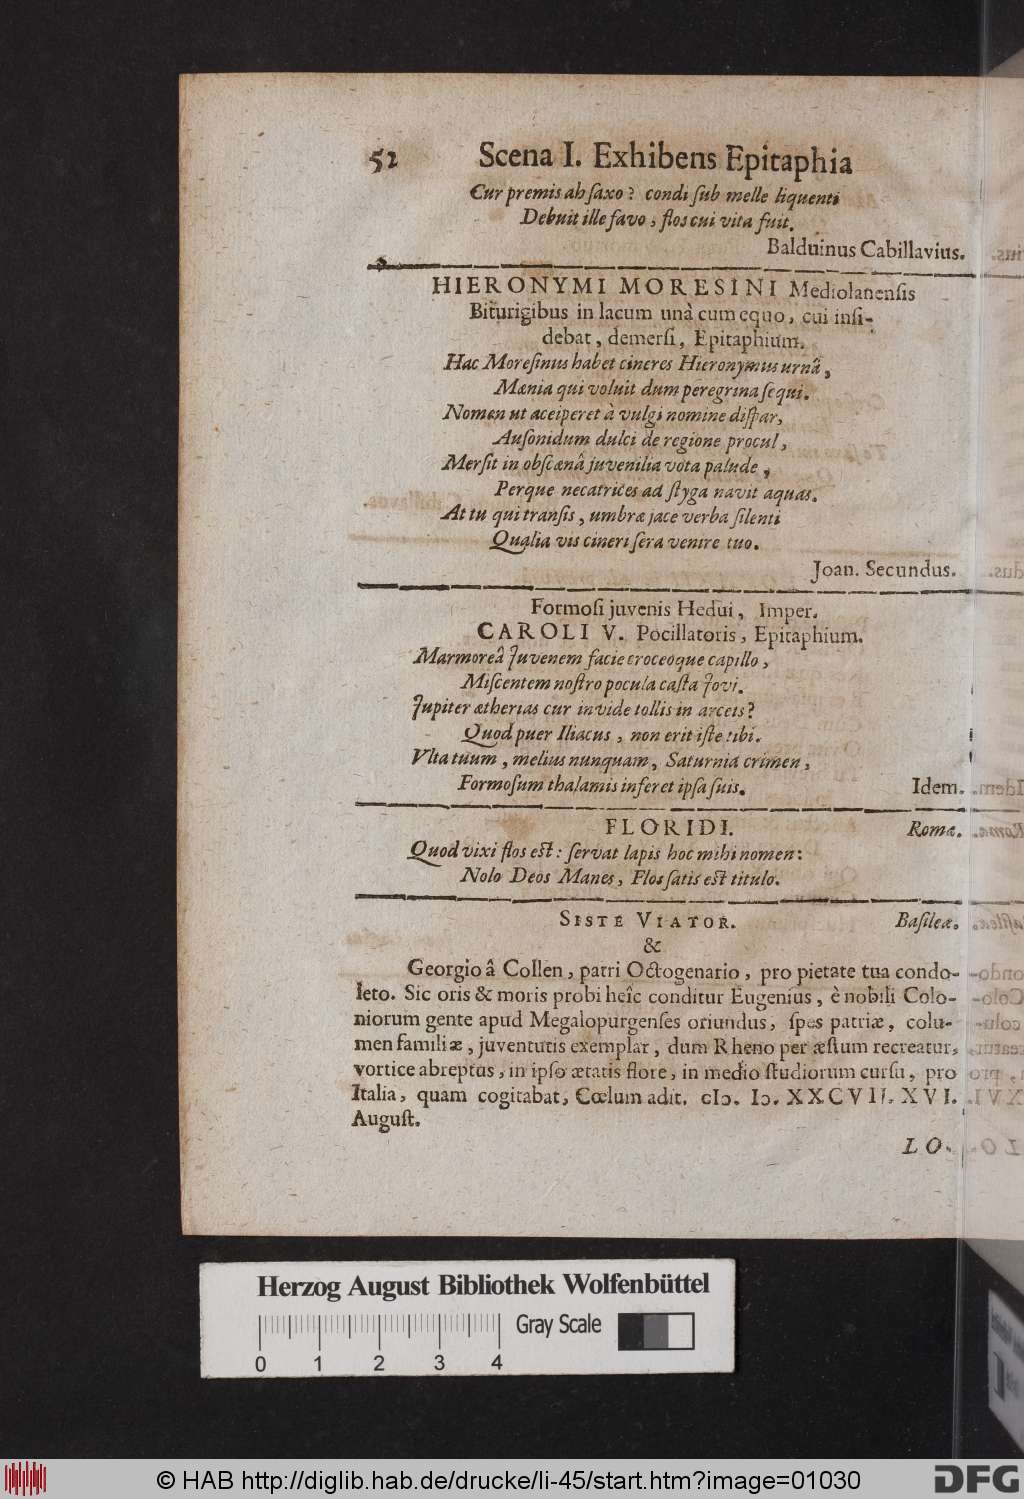 52 Scena I. Exhibens Epitaphia
Cur premis ah saxo? condi sub melle liquenti
Debuit ille favo, flos cui vita fuit.
Balduinus Cabillavius.
HIERONYMI MORESINI Mediolanensis
Biturigibus in lacum unà cum equo, cui insi-
debat, demersi, Epitaphium.
Hac Moresinus habet cineres Hieronymus urnâ,
Mænia qui voluit dum peregrina sequi.
Nomen ut aceiperet à vulgi nomine dispar,
Ausonidum dulci de regione procul,
Mersit in obscænâ juvenilia vota palude,
Perque necatrices ad styga navit aquas.
At tu qui transis, umbræ jace verba silenti
Qualia vis cineri sera venire tuo.
Joan. Secundus.
Formosi juvenis Hedui, Imper.
CAROLI V. Pocillatoris, Epitaphium.
Marmoreâ Juvenem facie croceoque capillo,
Miscentem nostro pocula casta Jovi.
Jupiter ætherias cur invide tollis in arceis?
Quod puer Iliacus, non erit iste tibi.
Vlta tuum, melius nunquam, Saturnia crimen,
Formosum thalamis inferet ipsa suis. Idem.
FLORIDI. Romæ.
Quod vixi flos est: servat lapis hoc mihi nomen:
Nolo Deos Manes, Flos satis est titulo.
SISTE VIATOR. Basileæ.
&
Georgio â Collen, patri Octogenario, pro pietate tua condo-
leto. Sic oris & moris probi heîc conditur Eugenius, è nobili Colo-
niorum gente apud Megalopurgenses oriundus, spes patriæ, colu-
men familiæ, juventutis exemplar, dum Rheno per æstum recreatur,
vortice abreptus, in ipso ætatis flore, in medio studiorum cursu, pro
Italia, quam cogitabat, Cœlum adit. cIɔ. Iɔ. XXCVII. XVI.
August.
LO-
Herzog August Bibliothek Wolfenbüttel
Gray Scale
0 1 2 3 4
© HAB http://diglib.hab.de/drucke/li-45/start.htm?image=01030
DFG